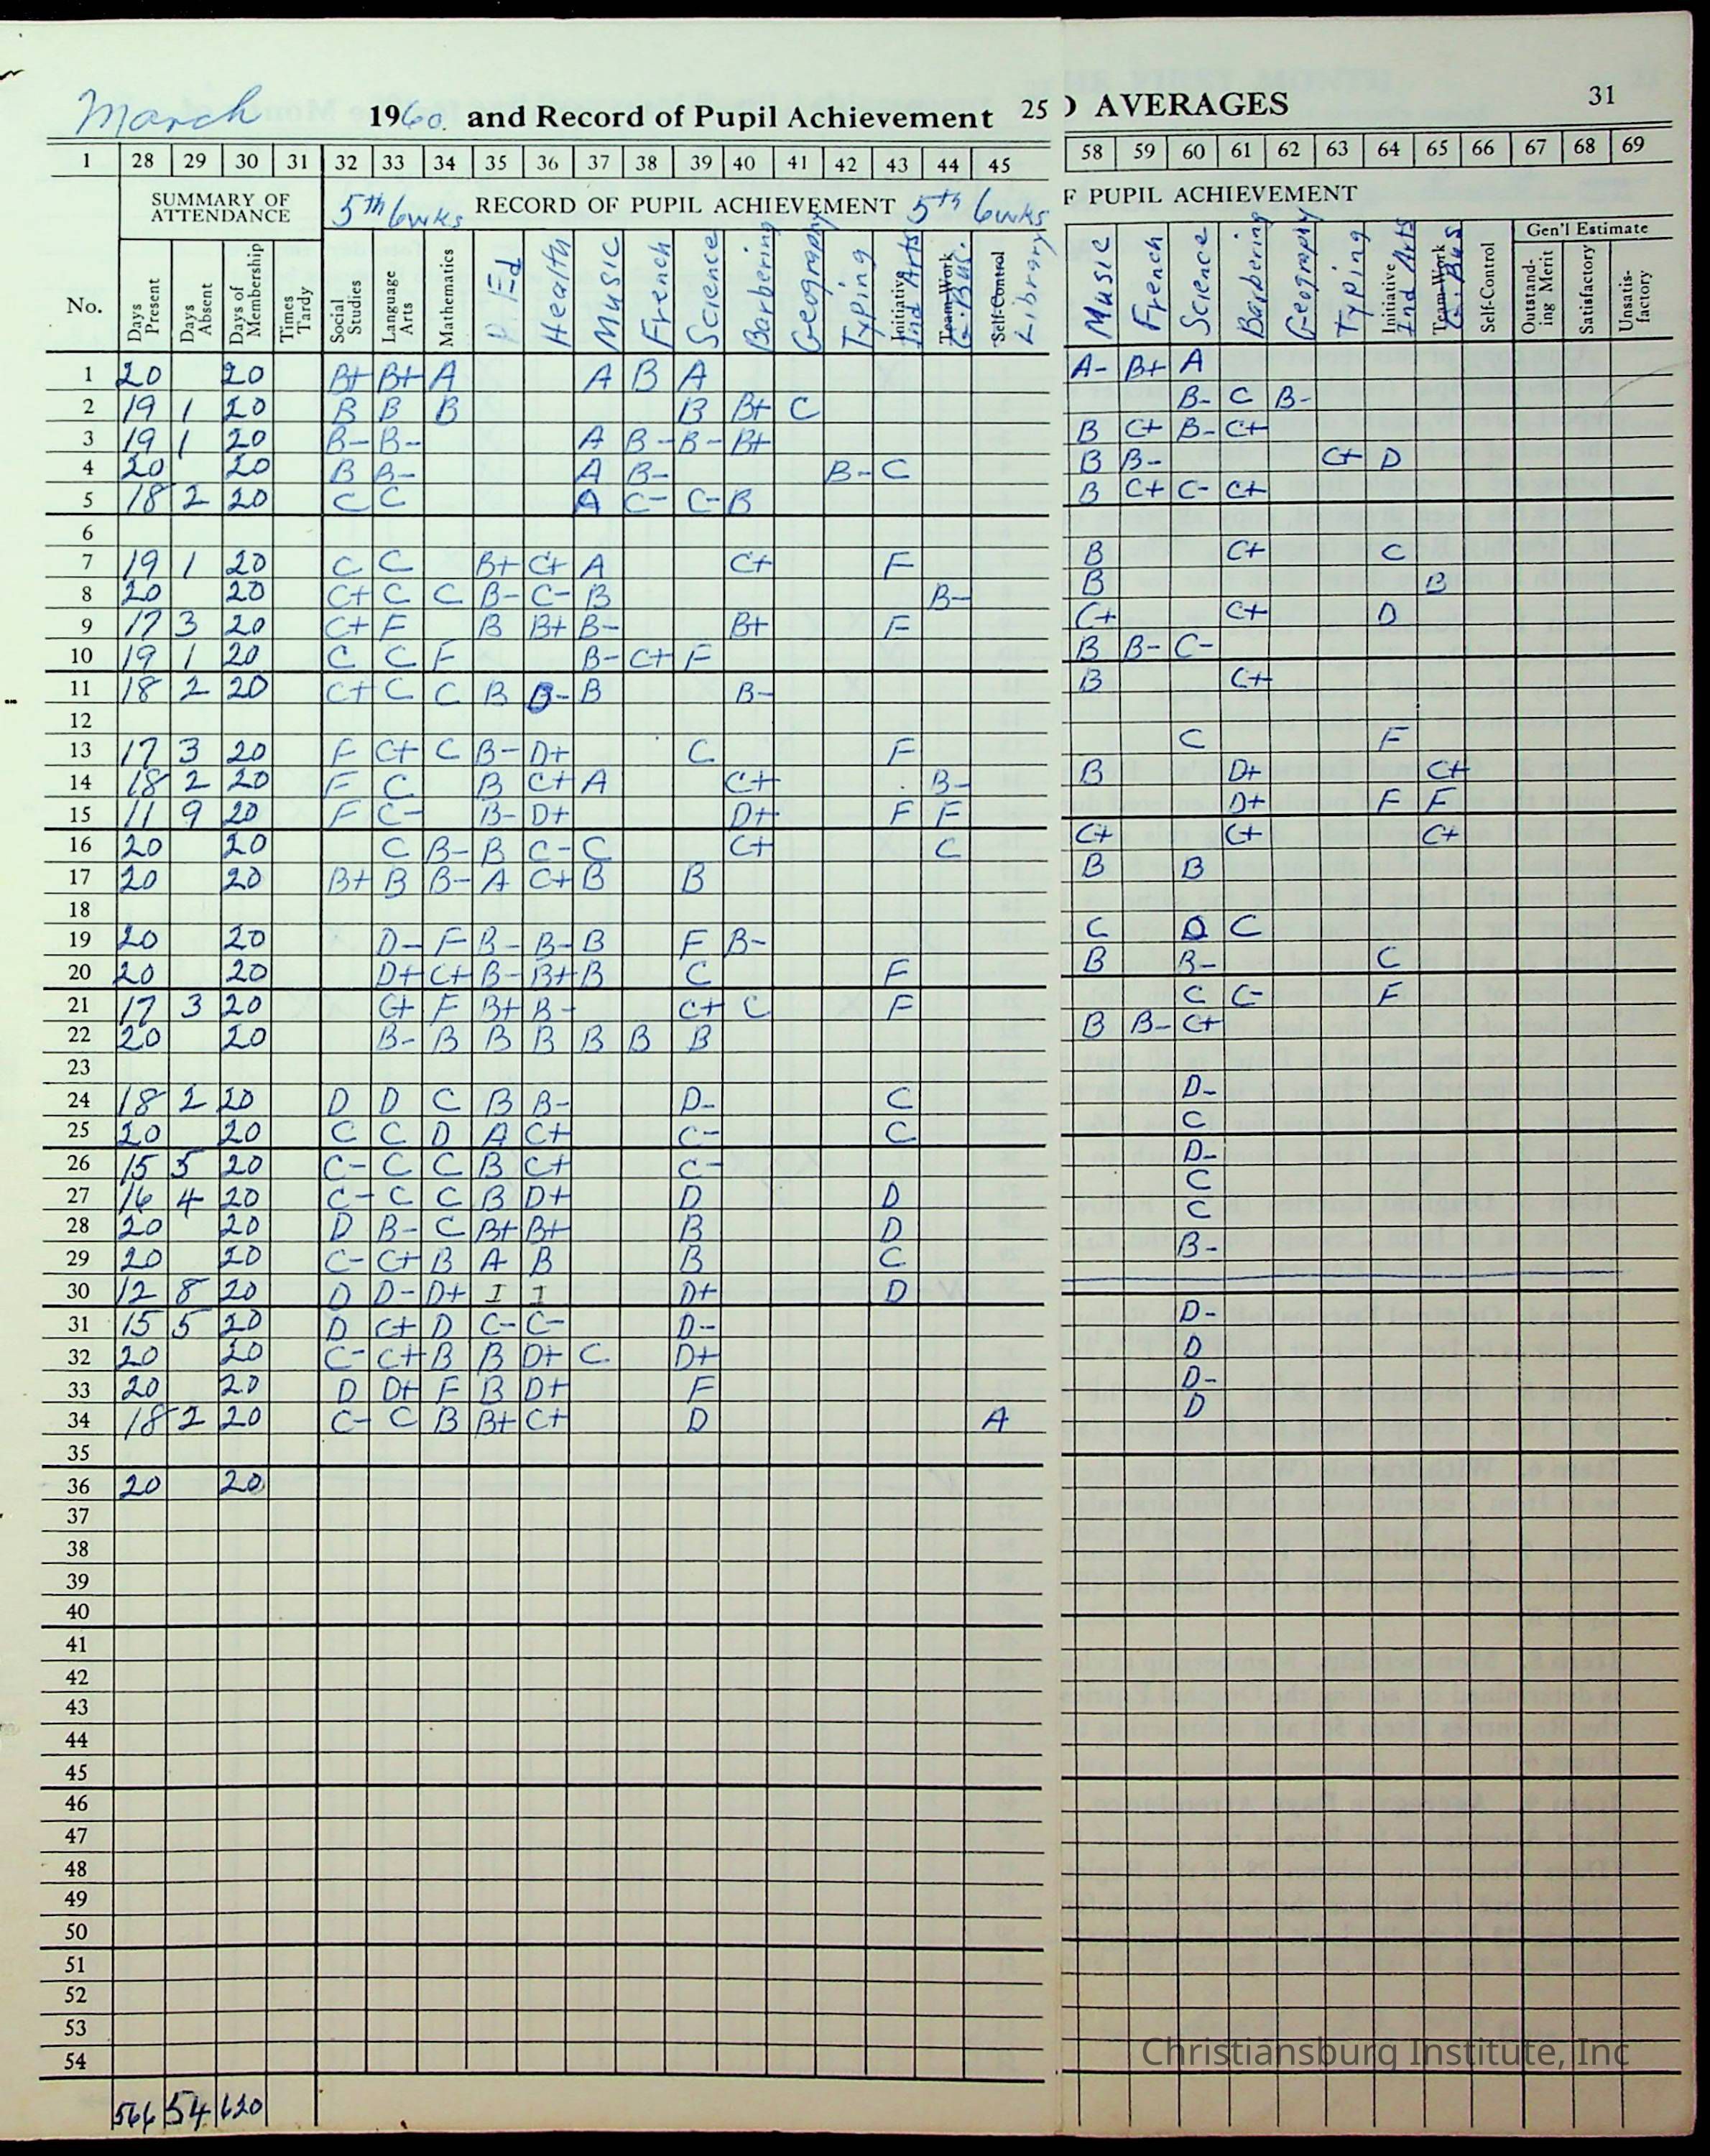 March 1960 and Record of Pupil Achievement 25
1 28 29 30 31 32 33 34 35 36 37 38 39 40 41 42 43 44 45
SUMMARY OF ATTENDANCE 5th 6wks RECORD OF PUPIL ACHIEVEMENT 5th 6wks
No. Days Present Days Absent Days of Membership Times Tardy Social Studies Language Arts Mathematics P. Ed Health Music French Science Barbering Geography Typing Initiative Ind Arts Team-Work G. Bus. Self-Control Library
1 20 20 B+ B+ A A B A
2 19 1 20 B B B B B+ C
3 19 1 20 B- B- A B- B- B+
4 20 20 B B- A B- B- C
5 18 2 20 C C A C- C- B
6
7 19 1 20 C C B+ C+ A C+ F
8 20 20 C+ C C B- C- B B-
9 17 3 20 C+ F B B+ B- B+ F
10 19 1 20 C C F B- C+ F
11 18 2 20 C+ C C B B- B B-
12
13 17 3 20 F C+ C B- D+ C F
14 18 2 20 F C B C+ A C+ B-
15 11 9 20 F C- B- D+ D+ F F
16 20 20 C B- B C- C C+ C
17 20 20 B+ B B- A C+ B B
18
19 20 20 D- F B- B- B F B-
20 20 20 D+ C+ B- B+ B C F
21 17 3 20 C+ F B+ B- C+ C F
22 20 20 B- B B B B B B
23
24 18 2 20 D D C B B- D- C
25 20 20 C C D A C+ C- C
26 15 5 20 C- C C B C+ C-
27 16 4 20 C- C C B D+ D D
28 20 20 D B- C B+ B+ B D
29 20 20 C- C+ B A B B C
30 12 8 20 D D- D+ I I D+ D
31 15 5 20 D C+ D C- C- D-
32 20 20 C- C+ B B D+ C D+
33 20 20 D D+ F B D+ F
34 18 2 20 C- C B B+ C+ D A
35
36 20 20
37
38
39
40
41
42
43
44
45
46
47
48
49
50
51
52
53
54
566 54 620
D AVERAGES 31
58 59 60 61 62 63 64 65 66 67 68 69
F PUPIL ACHIEVEMENT
Music French Science Barbering Geography Typing Initiative Ind Arts Team-Work G. Bus Self-Control Gen'l Estimate Outstanding Merit Satisfactory Unsatisfactory
A- B+ A
B- C B-
B C+ B- C+
B B- C+ D
B C+ C- C+
B C+ C
B B
C+ C+ D
B B- C-
B C+
C F
B D+ C+
D+ F F
C+ C+ C+
B B
C D C
B B- C
C C- F
B B- C+
D-
C
D-
C
C
B-
D-
D
D-
D
Christiansburg Institute, Inc